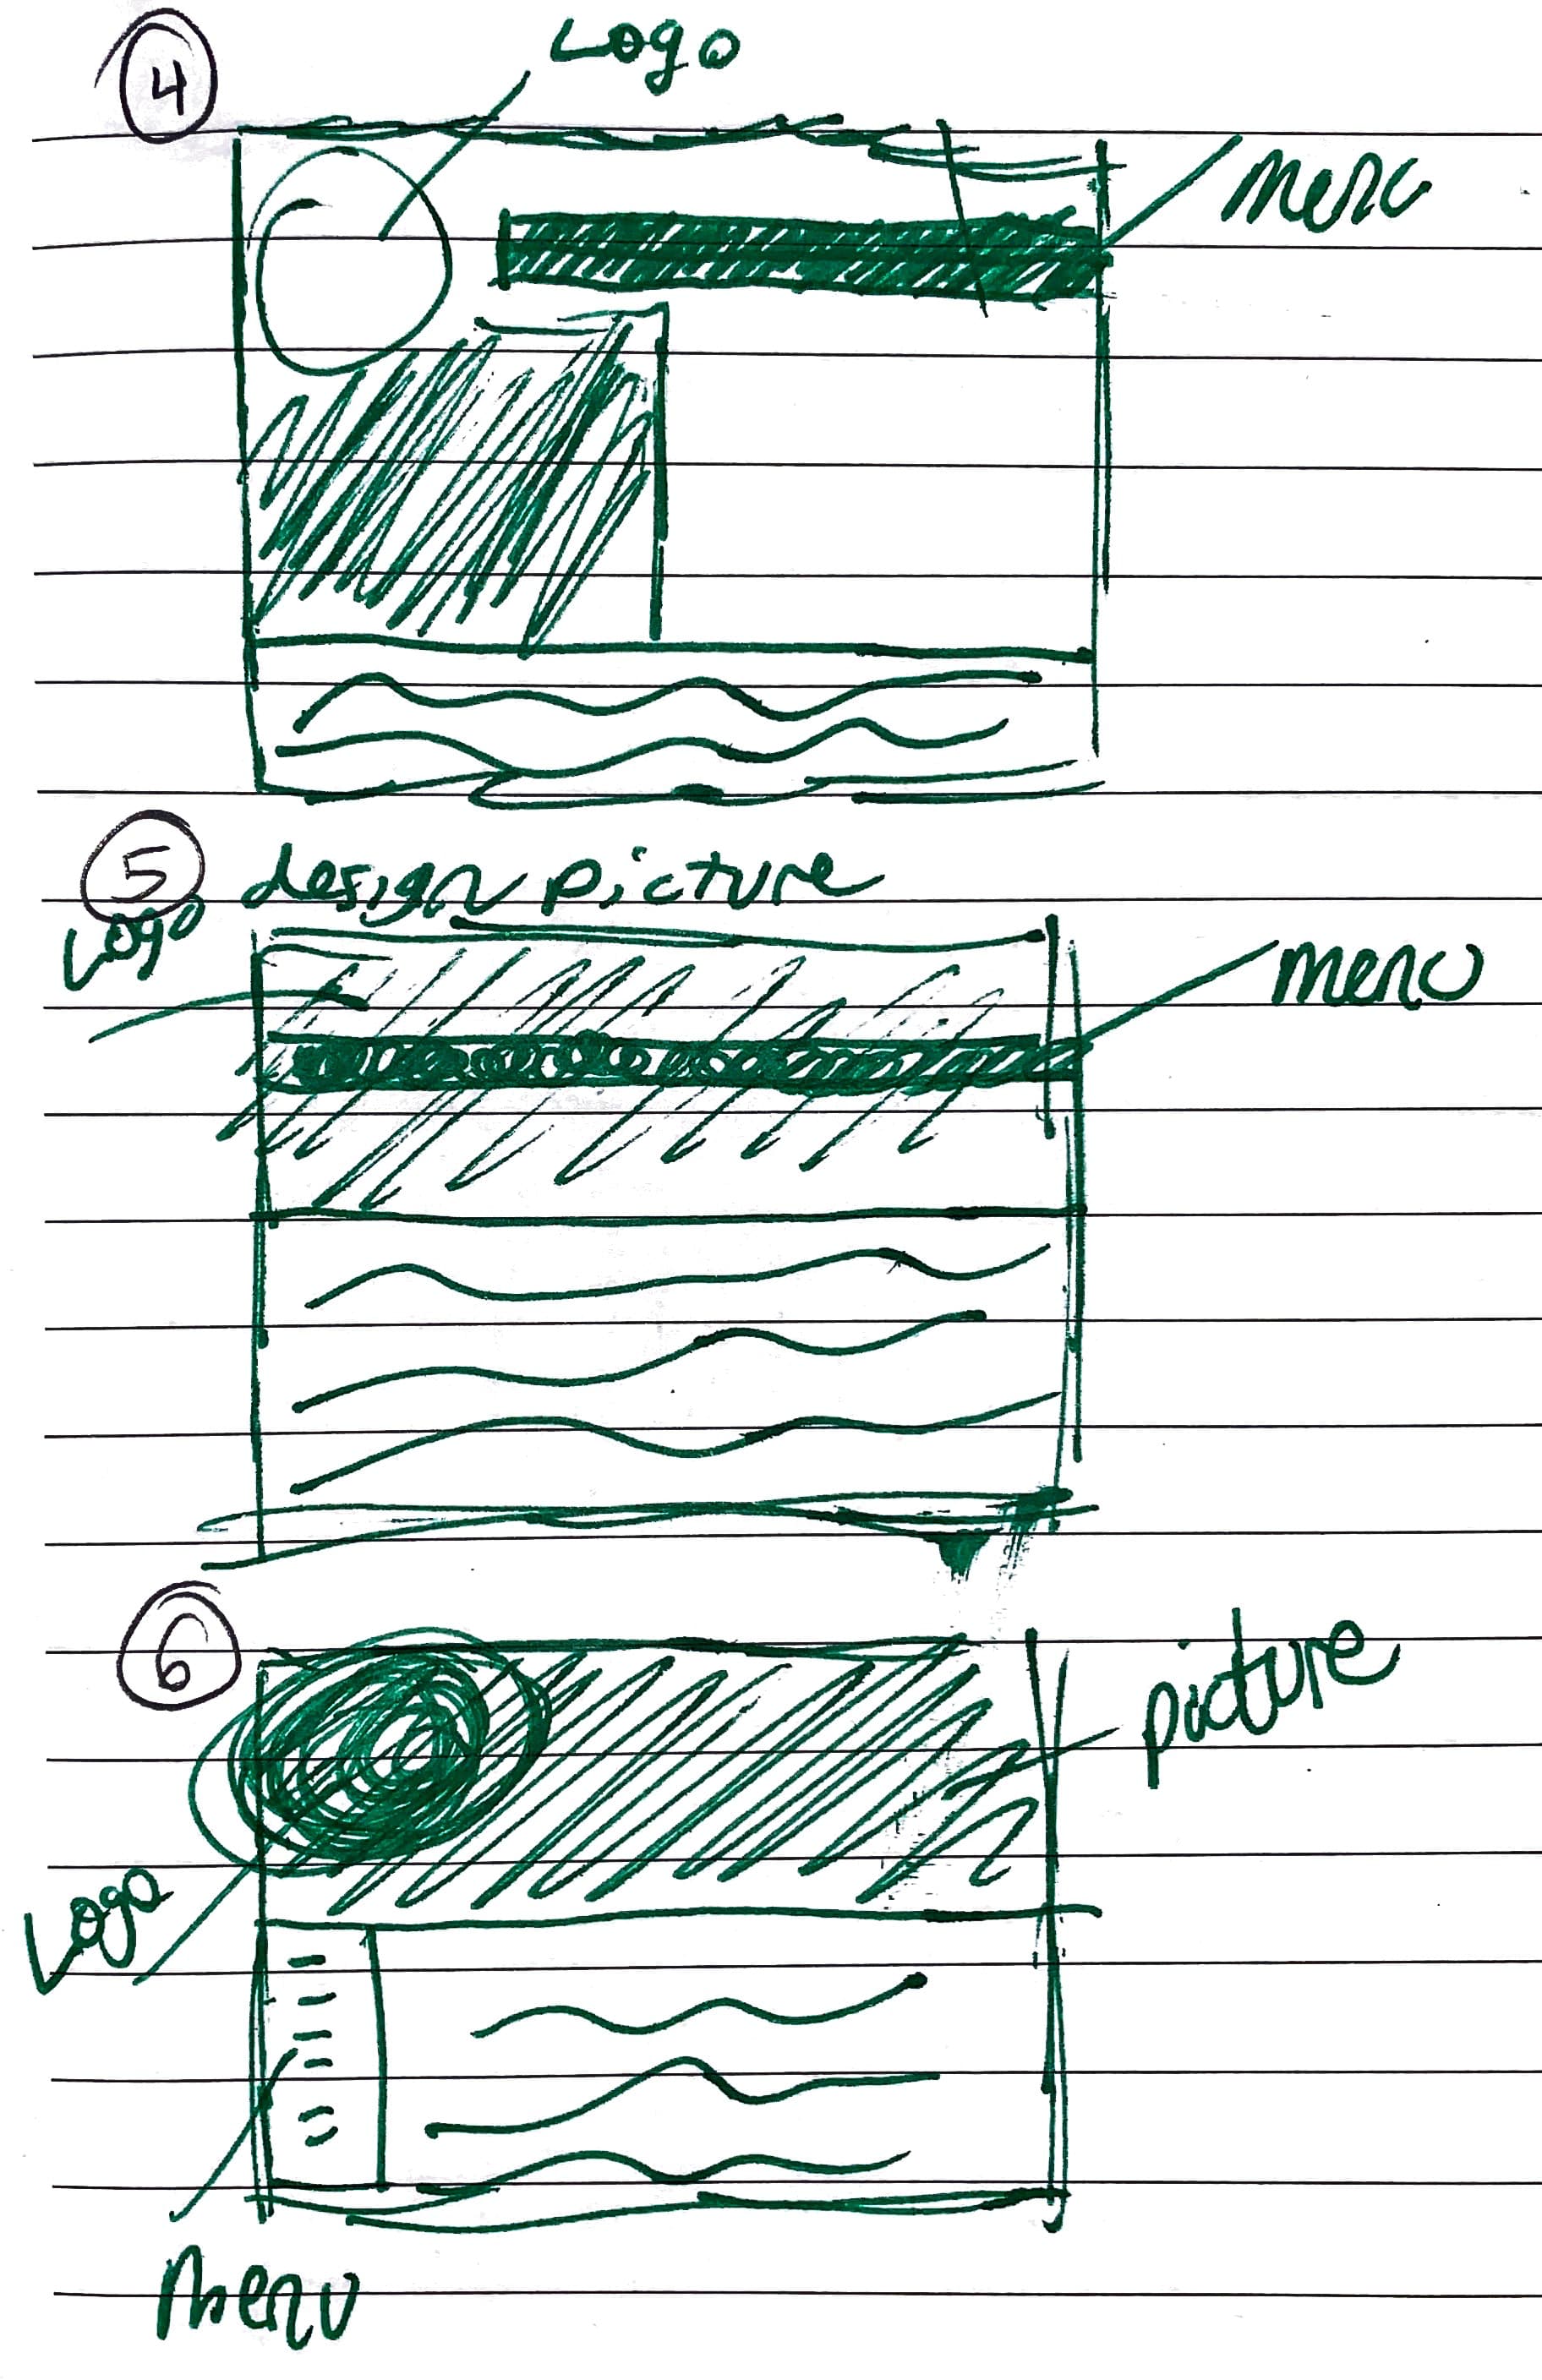 4
Logo
menu
5
design picture
Logo
menu
6
picture
Logo
menu